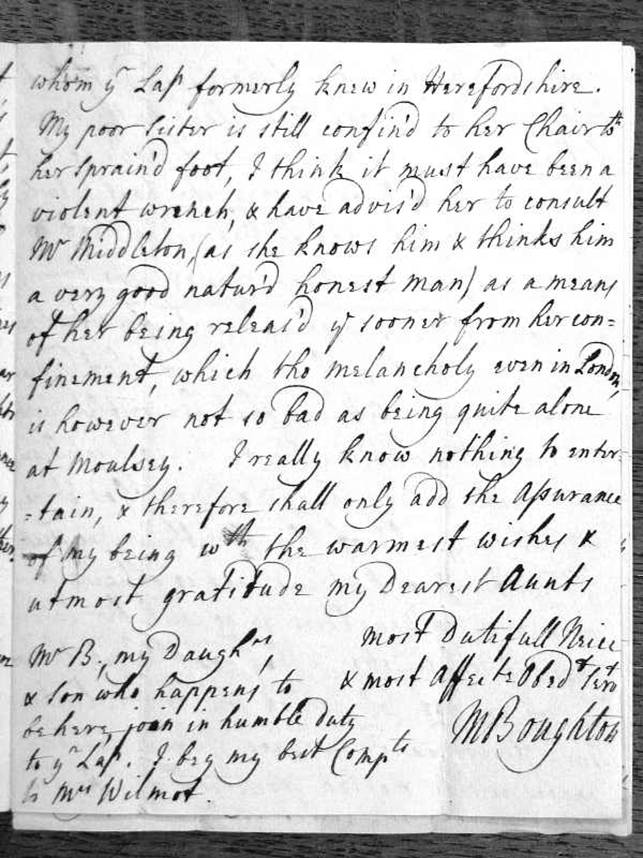 whom yr Lap formerly knew in Herefordshire.
My poor Sister is still confin'd to her Chair wth
her Sprain'd foot, I think it must have been a
violent wrench, & have advis'd her to consult
Mr Middleton, (as she knows him & thinks him
a very good natur'd honest man) as a means
of her being releas'd ye sooner from her con=
finement, which tho melancholy even in London,
is however not so bad as being quite alone
at Moulsey. I really know nothing to enter-
-tain, & therefore shall only add the Assurance
of my being wth the warmest wishes &
utmost gratitude my Dearest Aunts
most Dutifull Neice
& most Affecte Obedt Servt
MBoughton
Mr B., my Daughrs,
& Son who happens to
be here, join in humble duty
to yr Lap. I beg my best Compts
to Mrs Wilmot.